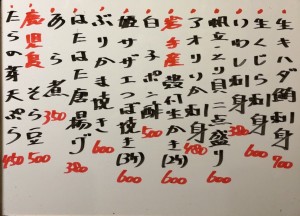 生キハダ鮪刺身 900
生くじら刺身 600
いわし刺身 600
帆立・とり貝二点盛り 600
アオリいか刺身 480
岩手産 殻付生かき(2ケ) 600
白子ポン酢 500
姫サザエつぼ焼き(3ケ) 600
ぶりかま焼き 600
はたはた唐揚げ 380
あら煮 350
鹿児島 そら豆 500
たらの芽天ぷら 450